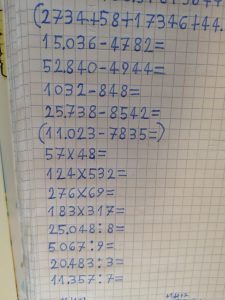 (2734+58+17346+44.
15.036-4782=
52.840-4944=
1032-848=
25.738-8542=
(11.023-7835=)
57x48=
124x532=
276x69=
183x317=
25.048:8=
5.067:9=
20.483:3=
11.357:7=